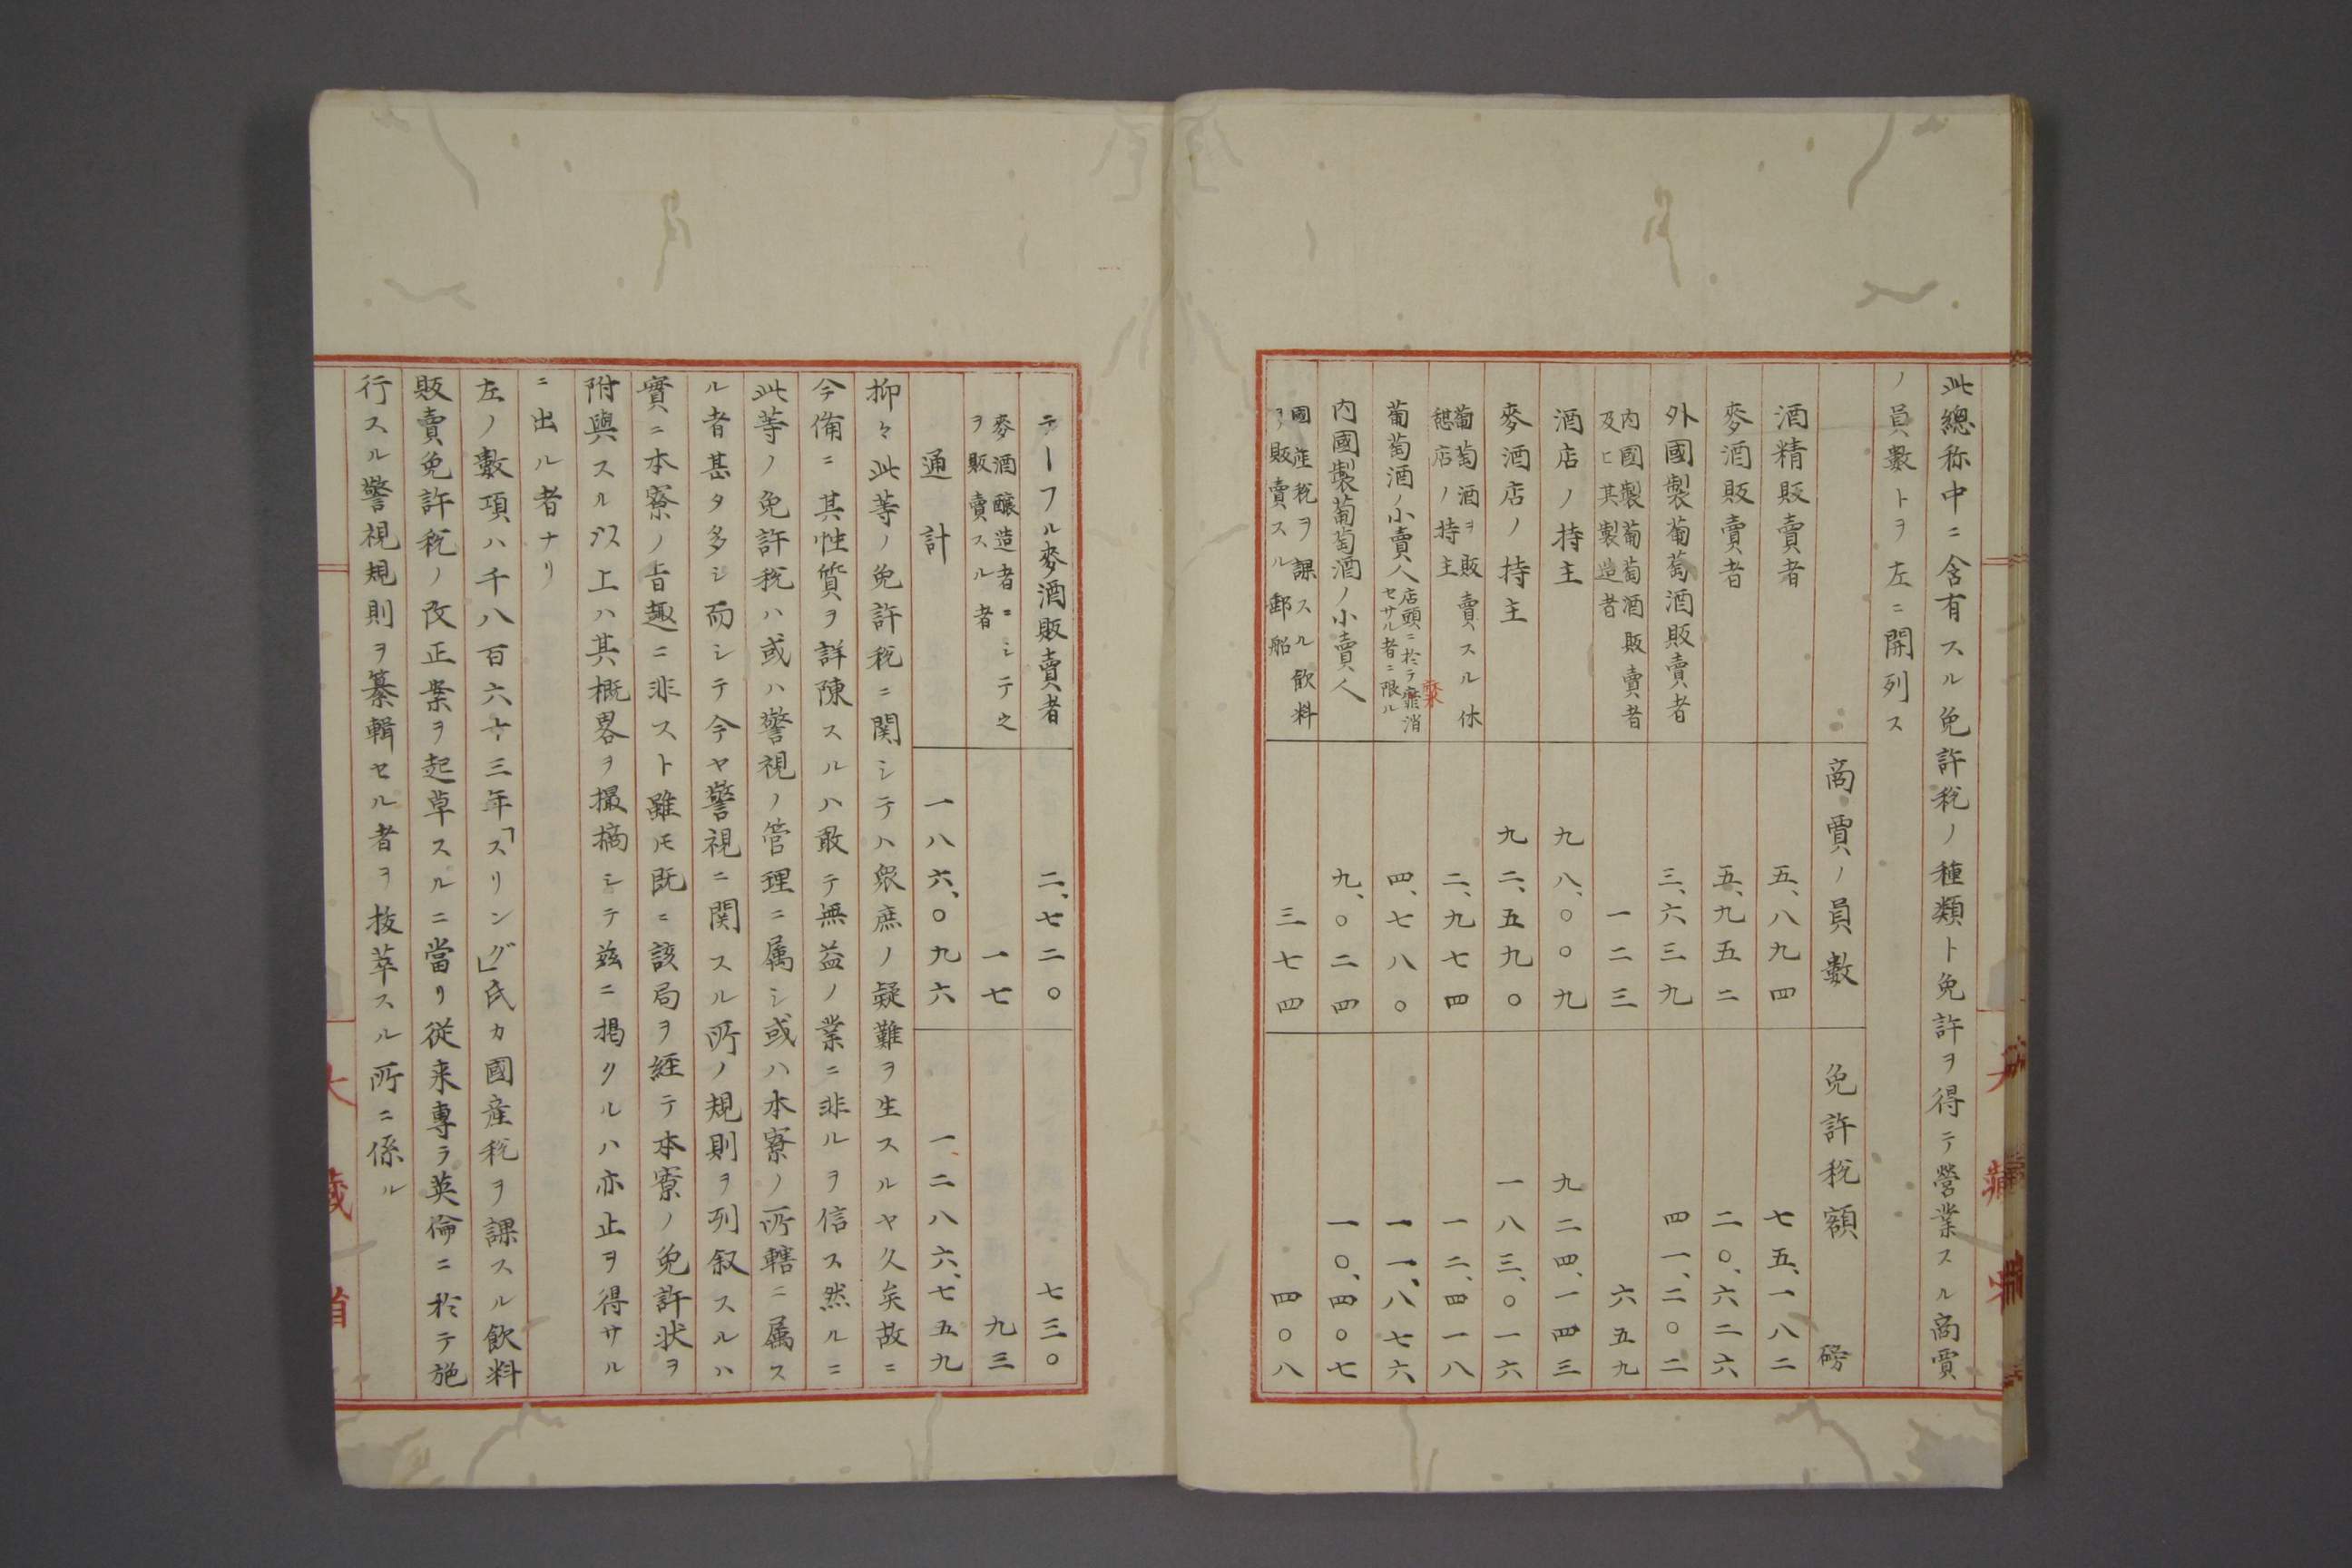 此總称中ニ含有スル免許稅ノ種類ト免許ヲ得テ營業スル商賈
ノ員數トヲ左ニ開列ス
商賈ノ員數 免許稅額 磅
酒精販賣者 五、八九四 七五、一八二
麥酒販賣者 五、九五二 二〇、六二六
外國製葡萄酒販賣者 三、六三九 四一、二〇二
內國製葡萄酒販賣者
及ヒ其製造者 一二三 六五九
酒店ノ持主 九八、〇〇九 九二四、一四三
麥酒店ノ持主 九二、五九〇 一八三、〇一六
葡萄酒ヲ販賣スル休
憩店ノ持主 二、九七四 一二、四一八
葡萄酒ノ小賣人 四、七八〇 一一、八七六
店頭ニ於テ消
セサル者ニ限ル
內國製葡萄酒ノ小賣人 九、〇二四 一〇、四〇七
國産稅ヲ課スル飲料
ヲ販賣スル郵船 三七四 四〇八
テーフル麥酒販賣者 二、七二〇 七三〇
麥酒釀造者ニシテ之
ヲ販賣スル者 一七 九三
通計 一八六、〇九六 一、二八六、七五九
抑々此等ノ免許稅ニ関シテハ衆庶ノ疑難ヲ生スルヤ久矣故ニ
今備ニ其性質ヲ詳陳スルハ敢テ無益ノ業ニ非ルヲ信ス然ルニ
此等ノ免許稅ハ或ハ警視ノ管理ニ属シ或ハ本寮ノ所轄ニ属ス
ル者甚タ多シ而シテ今ヤ警視ニ関スル所ノ規則ヲ列叙スルハ
實ニ本寮ノ旨趣ニ非スト雖𪜈既ニ該局ヲ経テ本寮ノ免許状ヲ
附與スル以上ハ其概畧ヲ撮摘シテ兹ニ揭クルハ亦止ヲ得サル
ニ出ル者ナリ
左ノ數項ハ千八百六十三年「スリング」氏カ國産稅ヲ課スル飲料
販賣免許稅ノ改正案ヲ起草スルニ當リ従来專ラ英倫ニ於テ施
行スル警視規則ヲ纂輯セル者ヲ抜萃スル所ニ係ル